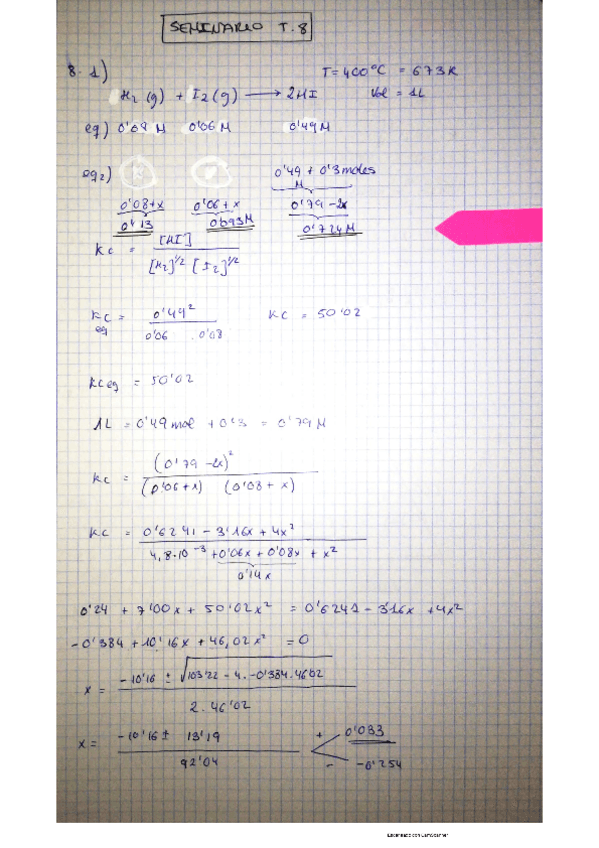 SEMINARIO T.8
8.1) T=400ºC = 673K
H2(g) + I2(g) ⟶ 2HI Vol = 1L
eq) 0'08 M 0'06 M 0'49 M
eq2) 0'49 + 0'3 moles
M
0'08+x 0'06+x 0'79-2x
0'113 0'093M 0'724M
Kc = [HI] / [H2]^1/2 [I2]^1/2
Kc eq = 0'49² / 0'06 . 0'08 Kc = 50'02
Kc eq = 50'02
1L = 0'49 mol + 0'3 = 0'79 M
Kc = (0'79 -2x)² / (0'06+x) (0'08+x)
Kc = 0'6241 - 3'16x + 4x² / 4,8·10^-3 +0'06x + 0'08x + x²
0'14x
0'24 + 7'00x + 50'02x² = 0'6241 - 3'16x +4x²
-0'384 + 10'16x + 46,02x² = 0
x = -10'16 ± √103'22 - 4.-0'384.46'02 / 2.46'02
x = -10'16 ± 13'19 / 92'04 + 0'033
- -0'254